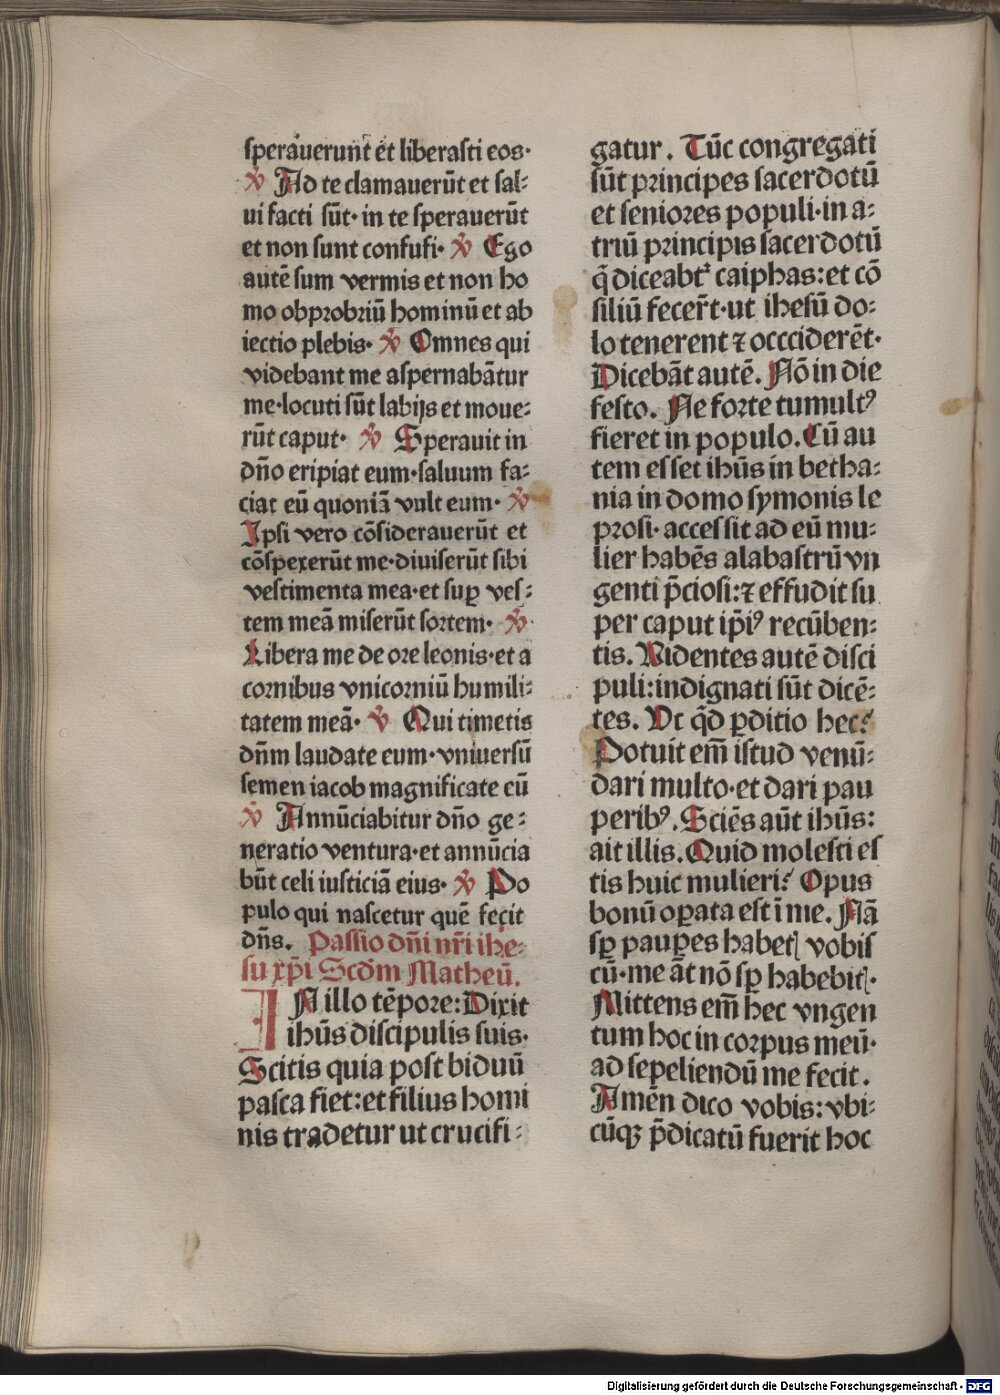 sperauerunt et liberasti eos·
℣ Ad te clamauerūt et sal⸗
ui facti sūt· in te sperauerūt
et non sunt confusi· ℣ Ego
autē sum vermis et non ho
mo obprobriū hominū et ab
iectio plebis· ℣ Omnes qui
videbant me aspernabātur
me·locuti sūt labijs et moue⸗
rūt caput· ℣ Sperauit in
dn̄o eripiat eum·saluum fa⸗
ciat eū quoniā vult eum· ℣
Ipsi vero cōsiderauerūt et
cōspexerūt me·diuiserūt sibi
vestimenta mea·et suꝑ ves⸗
tem meā miserūt sortem· ℣
Libera me de ore leonis·et a
cornibus vnicorniū humili⸗
tatem meā· ℣ Qui timetis
dn̄m laudate eum·vniuersū
semen iacob magnificate eū
℣ Annūciabitur dn̄o ge⸗
neratio ventura·et annūcia
būt celi iusticiā eius· ℣ Po
pulo qui nascetur quē fecit
dn̄s. Passio dn̄i nr̄i ihe⸗
su xp̄i Scd̄m Matheū.
IN illo tēpore: Dixit
ihūs discipulis suis·
Scitis quia post biduū
pasca fiet: et filius homi
nis tradetur ut crucifi⸗
gatur. Tūc congregati
sūt principes sacerdotū
et seniores populi·in a⸗
triū principis sacerdotū
q̄ diceabt᷑ caiphas: et cō
siliū fecer̄t·ut ihesū do⸗
lo tenerent ⁊ occciderēt·
Dicebāt autē. Nō in die
festo. Ne forte tumultꝰ
fieret in populo. Cū au
tem esset ihūs in betha⸗
nia in domo symonis le
prosi· accessit ad eū mu⸗
lier habēs alabastrū vn
genti p̄ciosi: ⁊ effudit su
per caput ip̄iꝰ recūben⸗
tis. Videntes autē disci
puli: indignati sūt dicē⸗
tes. Vt q̄d ꝑditio hec?
Potuit em̄ istud venū⸗
dari multo·et dari pau
peribꝰ. Sciēs aūt ihūs:
ait illis. Quid molesti es
tis huic mulieri? Opus
bonū oꝑata est ī me. Nā
sꝑ pauꝑes habetꝭ vobis
cū·me āt nō sꝑ habebitꝭ·
Mittens em̄ hec vngen
tum hoc in corpus meū·
ad sepeliendū me fecit.
Amēn dico vobis: vbi⸗
cūqꝫ p̄dicatū fuerit hoc
Digitalisierung gefördert durch die Deutsche Forschungsgemeinschaft - DFG